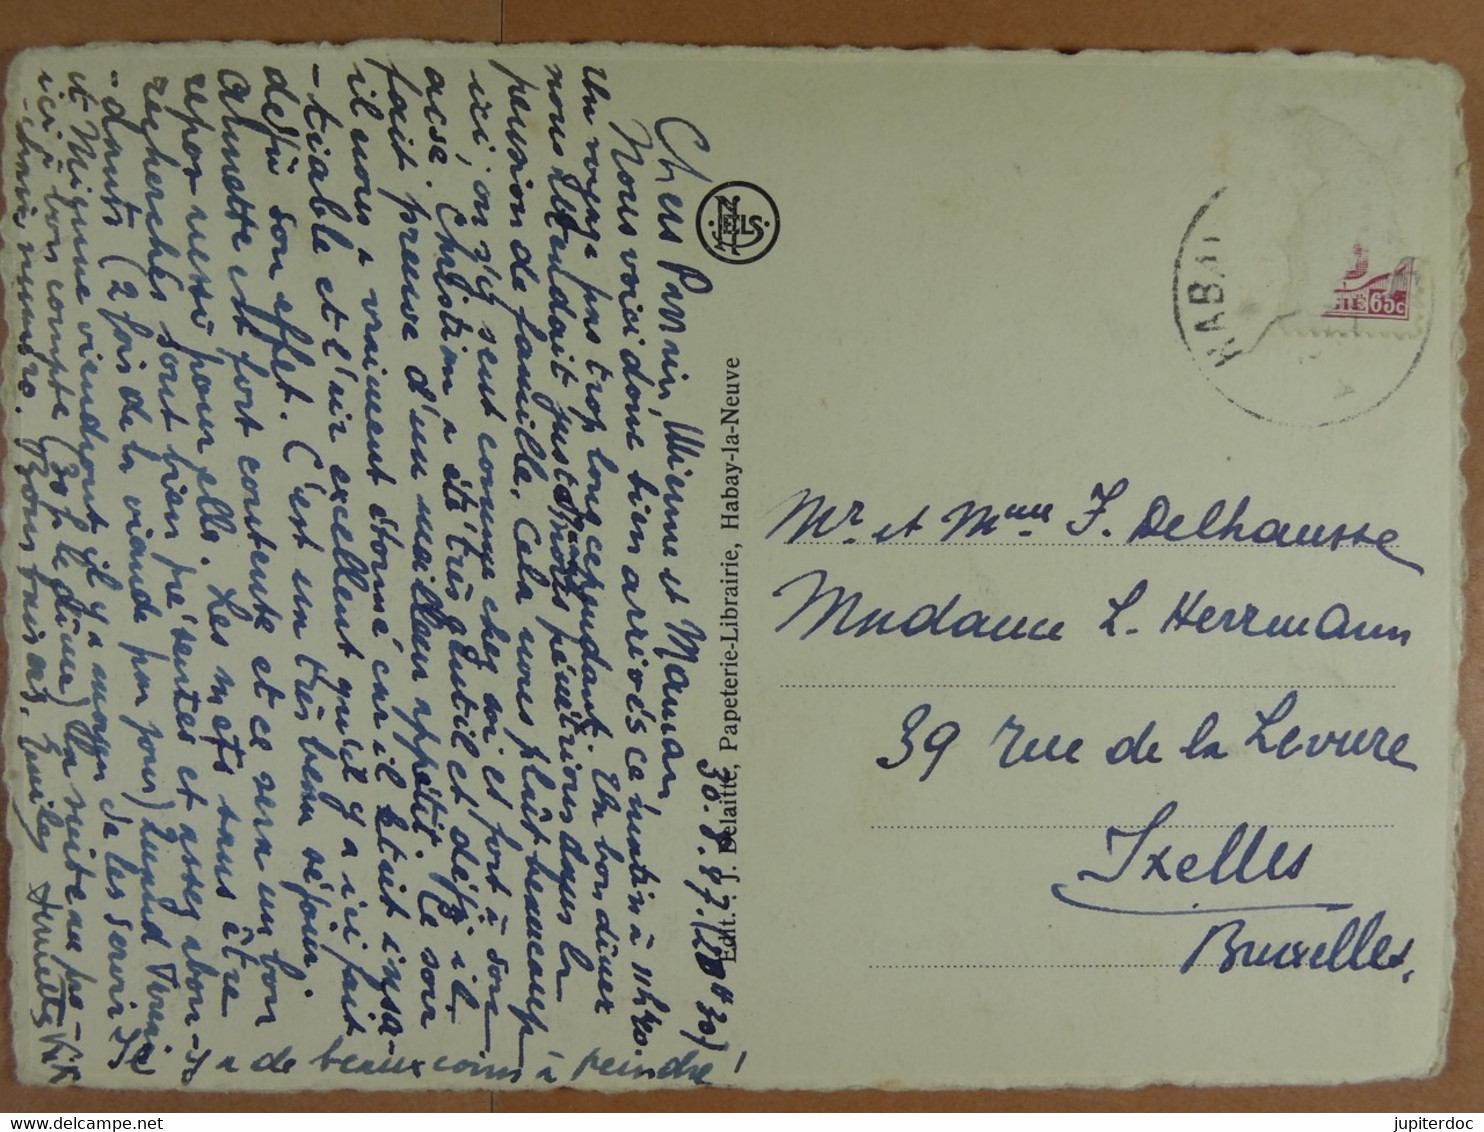 Chers Parrain, Mienne et Maman,
30.8.47. (20h30)
Nous voici donc bien arrivés ce matin à 11h40.
Un voyage pas trop long cependant. Un bon dîner
nous attendait justement. Nous pénétrions dans la
pension de famille. Cela nous plaît beaucoup
ici, on s'y sent comme chez soi et fort à son
aise. Christian a été très gentil et déjà il
fait preuve d'un meilleur appétit. Ce soir
il nous a vraiment étonné car il était insa-
-tiable et l'air excellent qu'il y a ici fait
déjà son effet. C'est un très beau séjour.
Annette est fort contente et ce sera un bon
repos aussi pour elle. Les mets sans être
recherchés sont bien présentés et assez abon-
-dants (2 fois de la viande par jour) Quand
et Mienne viendront il y a moyen de les servir
ici à bon compte (30 f le dîner) La suite au pro-
-chain numéro. Bons baisers,
Il y a de beaux coins à peindre!
JELZ
ELS
Edit. : J. Delaitte, Papeterie-Librairie, Habay-la-Neuve
HABAY
A
65c
Mr et Mme F. Delhausse
Madame L. Herrmann
39 rue de la Levure
Ixelles
Bruxelles.
jupiterdoc